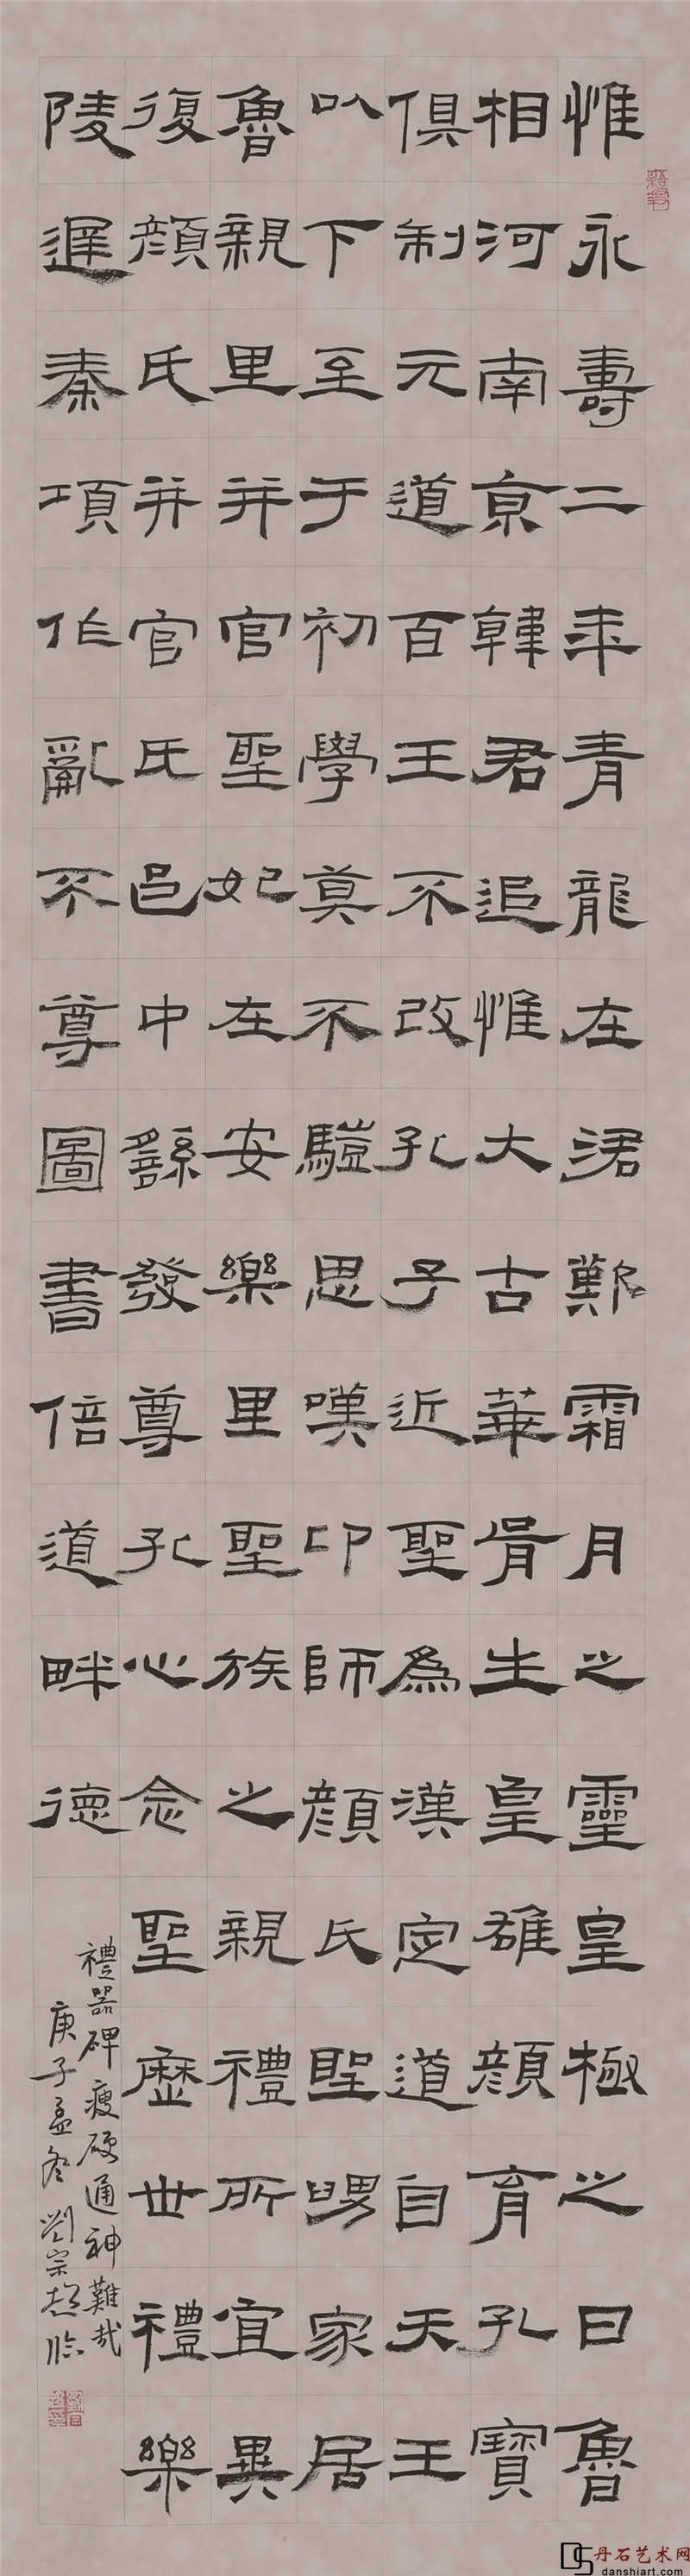 惟永壽二年青龍在涒歎霜月之靈皇極之日魯
相河南京韓君追惟大古華胥生皇雄顏育孔寶
俱制元道百王不改孔子近聖為漢定道自天王
以下至于初學莫不驥思嘆卬師顏氏聖舅家居
魯親里并官聖妃在安樂里聖族之親禮所宜異
復顏氏并官氏邑中繇發尊孔心念聖歷世禮樂
陵遲秦項作亂不尊圖書倍道畔德
禮器碑瘦硬通神難哉
庚子孟冬劉宗超臨
DS 丹石艺术网
danshiart.com